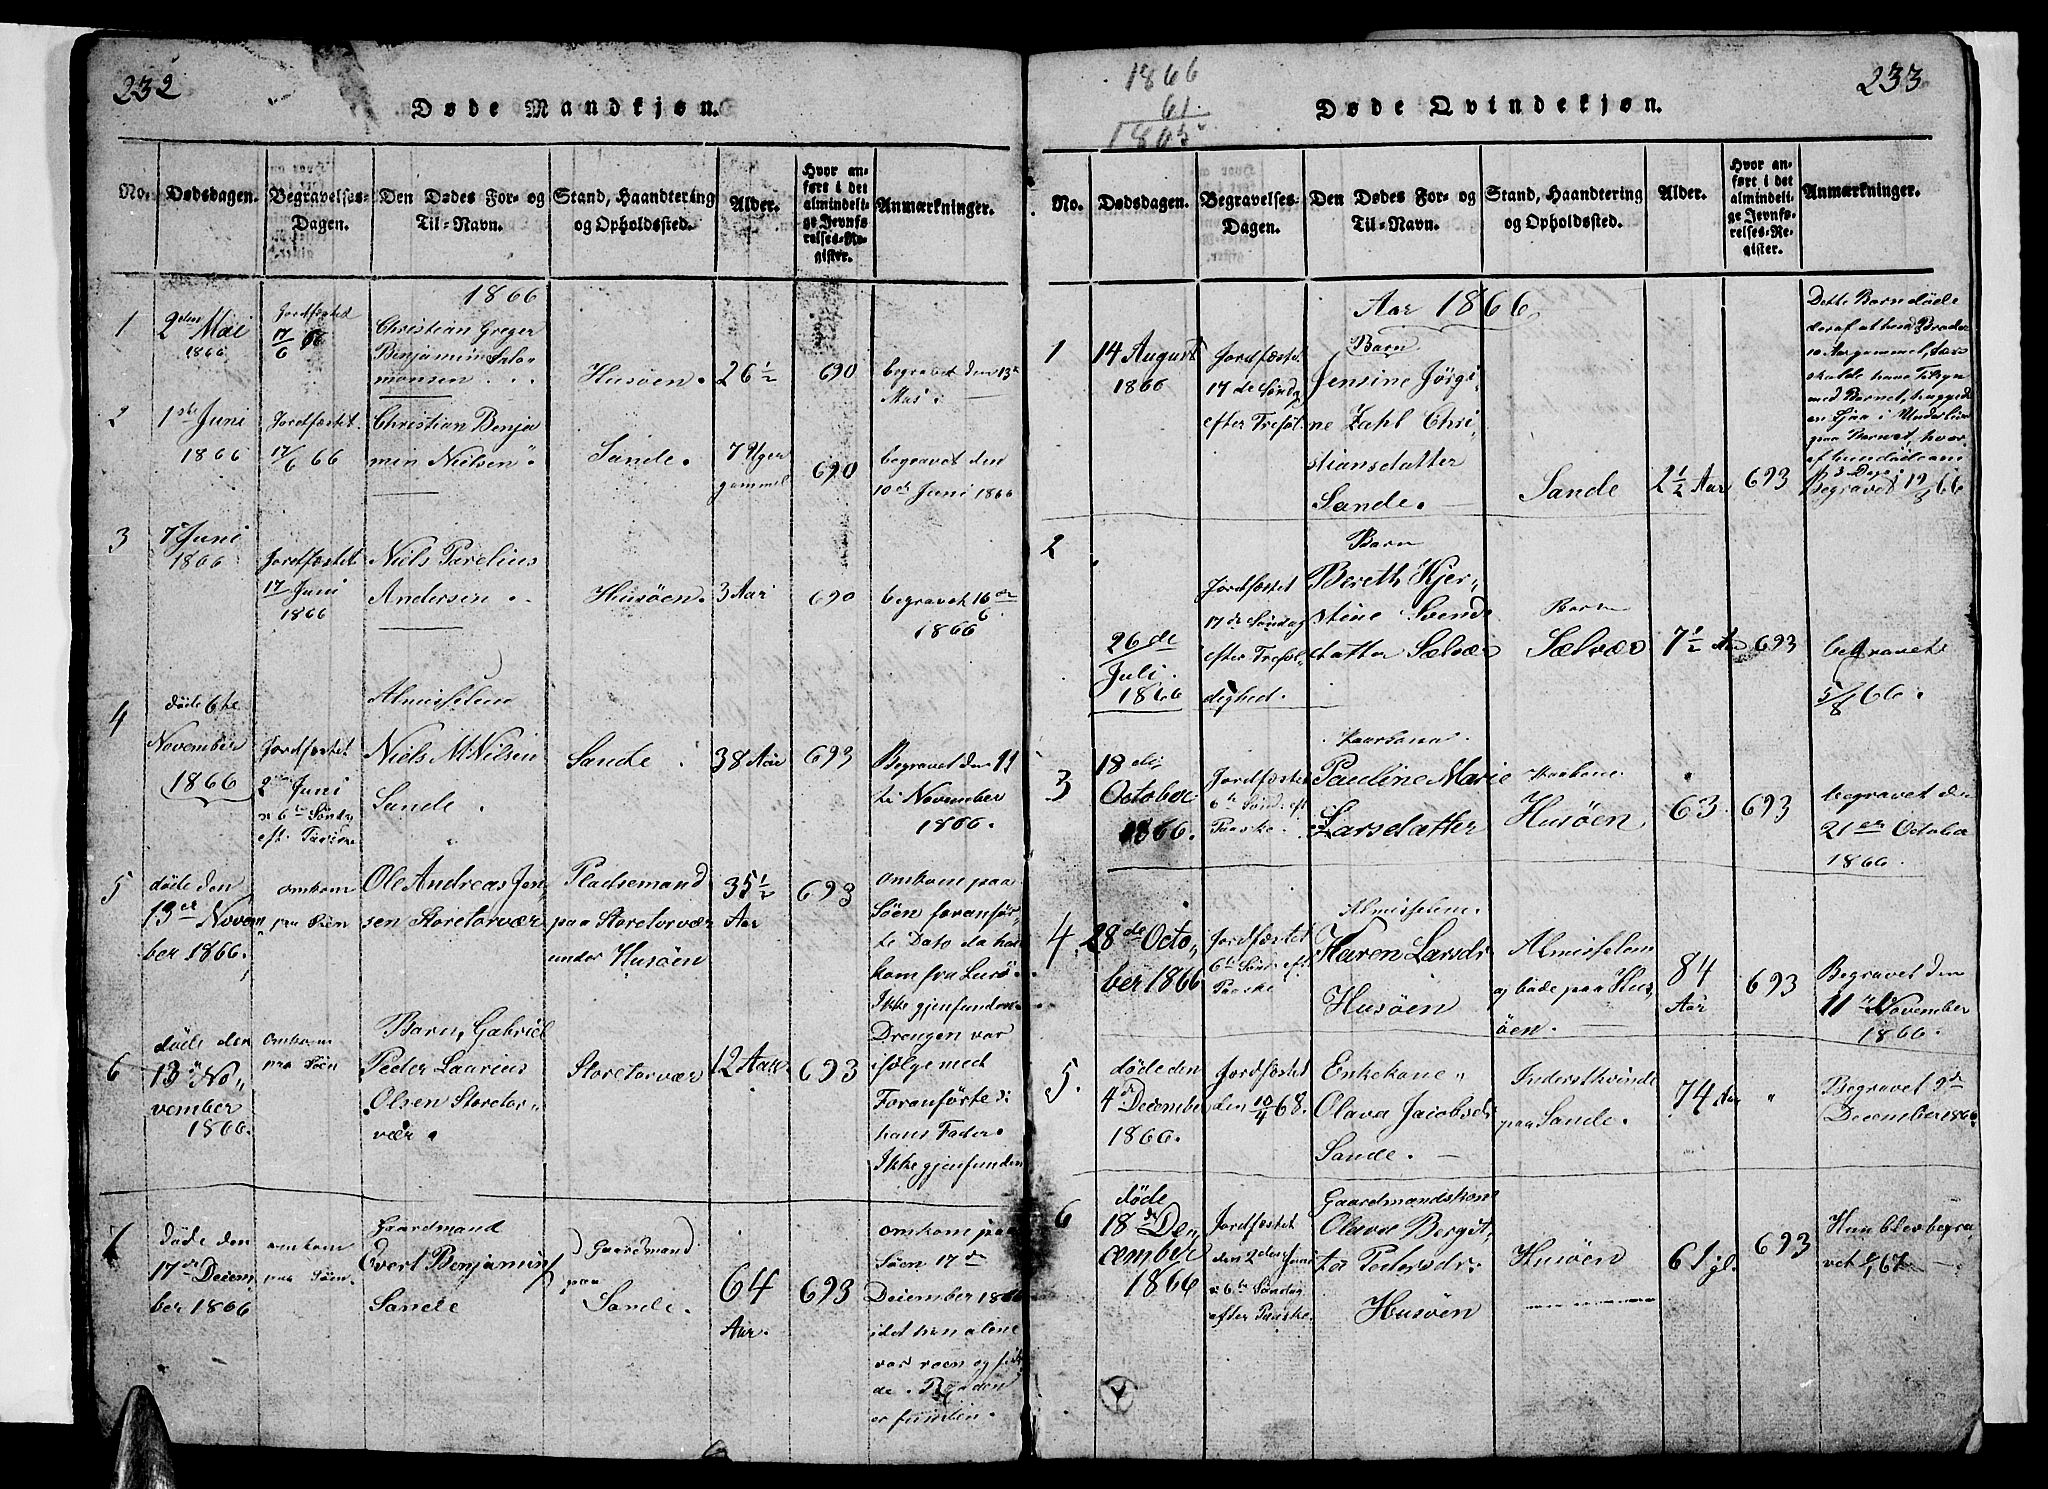 232
Døde Mandkjøn.
No.
Dødsdagen.
Begravelses-
Dagen.
Den Dødes For- og
Til-Navn.
Stand, Haandtering
og Opholdssted.
Alder.
Hvor an-
ført i det
almindeli-
ge Jevnfø-
relses-Re-
gister.
Anmærkninger.
1866
1
2den Mai
1866
Jordfæsted
17/6 66
Christian Greger
Benjamin Salo-
monsen
Husöen.
26 1/2
690
begravet den 13de
Mai
2
1ste Juni
1866
Jordfæstet
17/6 66
Christian Benja
min Nielsen
Sande.
7 Uger
gammel
690
begravet den
10de Juni 1866
3
7de Juni
1866
Jordfæstet
17 Juni
1866
Niels Parelius
Andersen
Husöen.
3 Aar
690
begravet 16de
6
1866
4
döde 6te
November
1866
Jordfæstet
2den Juni
6te Sönd.
eft. Paaske
Almisselem
Niels M. Nilsen
Sande
Sande
38 Aar
693
Begravet den 11
te November
1866.
5
döde den
13de Novem
ber 1866.
omkom
paa Söen
Ole Andreas Jen
sen Storetorvær
Pladsemand
paa Storetorvær
under Husöen
35 1/2
Aar
693
omkom paa
Söen foranfør-
te Dato da han
kom fra Lurö.
Ikke gjenfunden.
6
döde den
13de No-
vember
1866.
omkom
paa Söen
Barn, Gabriel
Peder Laurius
Olsen Storetor-
vær.
Storetorvær
12 Aar
693
Drengen var
ifølge med
Foranförte
hans Fader.
Ikke gjenfunden
7
Döde den
17de Decem
ber 1866
omkom
paa Söen
Gaardmand
Evert Benjamins
Sande
Gaardmand
paa
Sande.
64
Aar.
693
omkom paa
Söen 17de
December 1866
idet han alene
var roen og
de.
er funden.
1866
61
1805
233
Døde Qvindekjøn.
No.
Dødsdagen.
Begravelses-
Dagen.
Den Dødes For- og
Til-Navn.
Stand, Haandtering
og Opholdssted.
Alder.
Hvor an-
ført i det
almindeli-
ge Jevnfø-
relses-Re-
gister.
Anmærkninger.
Aar 1866
1
14 August
1866
Jordfæstet
17de Söndag
efter Trefol.
Barn
Jensine Jörgi-
ne Zahl Chri-
stiansdatter
Sande.
Sande
2 1/2 Aar
693
Dette Barn döde
deraf at hend Broder
10 Aar gammel,
skulde have Tilsyn
med Barnet, huggede
en Ljaa i Underlivet
paa Barnet, hvor-
af hun döde
Begravet 19/8 66
2
26de
Juli
1866
Jordfæstet
17de Söndag
efter Trefol-
dighed.
Barn
Bereth Kjer-
stine Svends
datter Sælvær
Barn
Sælvær
7 1/2 Aar
693
begravet
5/8 66.
3
18de
October
1866.
Jordfæstet
6te Sönd. eft
Paaske
Pauline Marie
Larsdatter
Husöen
63.
693
begravet den
21de October
1866.
4.
28de Octo-
ber 1866
Jordfæstet
6te Sönd. eft
Paaske
Almisselem.
Karen Larsdr
Husöen
Almisselem
og bode paa Hus
öen.
84
Aar
693
Begravet den
11de November
1866.
5.
döde den
4de December
1866.
Jordfæstet
den 10/4 68.
Enkekone
Olava Jacobsdr
Sande.
Inderstkvinde
paa Sande.
74 Aar
"
Begravet 9de
December 1866
6
döde
18de De-
cember
1866
Jordfæstet
den 2den Juni
6te Söndag
efter Paaske.
Gaardmandskone
Olava Bergit-
ta Pedersdr.
Husöen
Husöen
61 gl.
693
Hun blev begra
vet 67